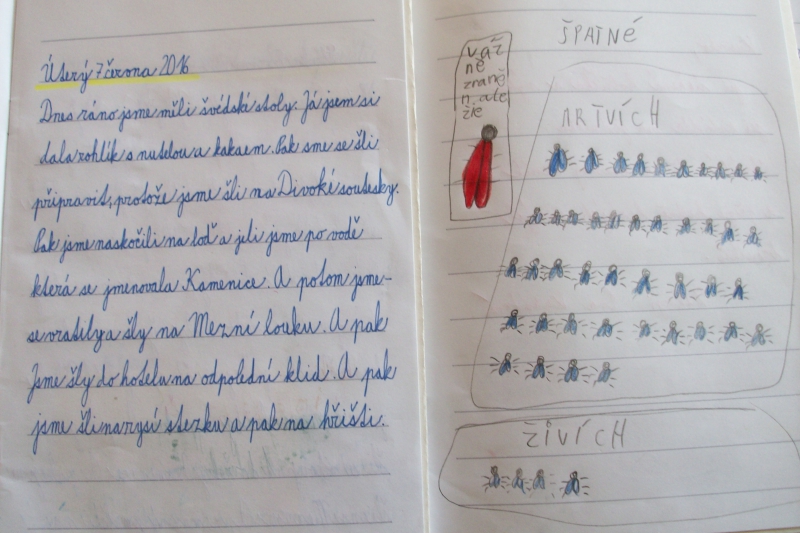 Úterý 7 června 2016
Dnes ráno jsme měli švédské stoly. Já jsem si
dala rohlík s nutelou a kakaem. Pak sme se šli
připravit, protože jsme šli na Divoké soutesky.
Pak jsme naskočili na loď a jeli jsme po vodě
která se jmenovala Kamenice. A potom jsme-
se vratily a šly na Mezní louku. A pak
jsme šly do hotelu na odpolední klid. A pak
jsme šli na rysí stezku a pak na hřišti.
ŠPATNÉ
váž
ně
zraně
n ale
žie
MRTVÍCH
ŽIVÍCH